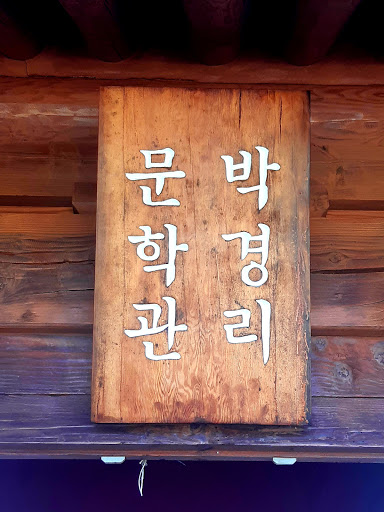 박경리
문학관